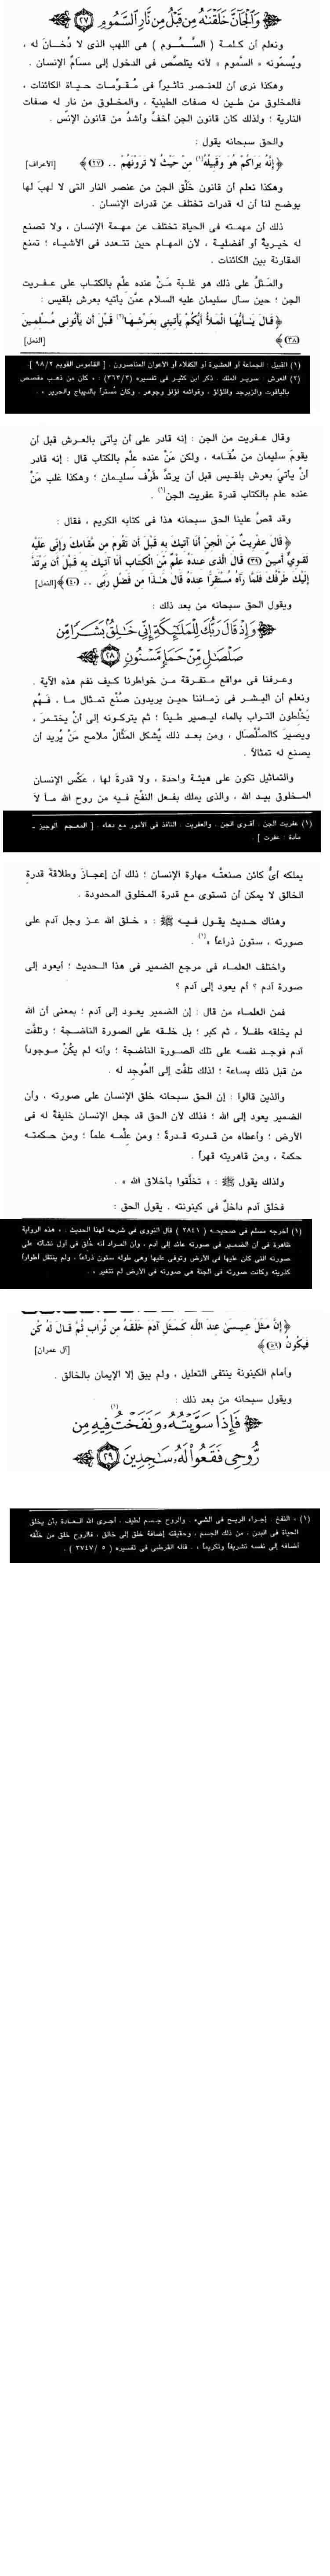 وَالْجَانَّ خَلَقْنَاهُ مِن قَبْلُ مِن نَّارِ السَّمُومِ ﴿٢٧﴾
ونعلم أن كلمة ( السَّمُوم ) هى اللهب الذى لا دُخَان له ،
ويُسمّونه « السَّموم » لأنه يتلصَّص فى الدخول إلى مسَامِّ الإنسان .
وهكذا نرى أن للعنصر تأثيراً فى مُقوِّمات حياة الكائنات ،
فالمخلوق من طين له صفات الطينية ، والمخلوق من نار له صفات
النارية ؛ ولذلك كان قانون الجن أخفَّ وأشدَّ من قانون الإنْس .
والحق سبحانه يقول :
﴿ إِنَّهُ يَرَاكُمْ هُوَ وَقَبِيلُهُ(١) مِنْ حَيْثُ لا تَرَوْنَهُمْ .. (٢٧) ﴾ [الأعراف]
وهكذا نعلم أن قانون خَلْق الجن من عنصر النار التى لا لهبَ لها
يوضح لنا أن له قدرات تختلف عن قدرات الإنسان .
ذلك أن مهمته فى الحياة تختلف عن مهمة الإنسان ، ولا تصنع
له خيرية أو أفضلية ، لأن المهام حين تتعدد فى الأشياء ؛ تمنع
المقارنة بين الكائنات .
والمَثلُ على ذلك هو غلبة مَنْ عنده علْم بالكتاب على عفريت
الجن ؛ حين سأل سليمان عليه السلام عمَّن يأتيه بعرش بلقيس :
﴿ قَالَ يَا أَيُّهَا الْمَلأُ أَيُّكُمْ يَأْتِينِي بِعَرْشِهَا(٢) قَبْلَ أَن يَأْتُونِي مُسْلِمِينَ
(٣٨) ﴾ [النمل]
(١) القبيل : الجماعة أو العشيرة أو الكفلاء أو الأعوان المناصرون . [ القاموس القويم ٩٨/٢ ] .
(٢) العرش : سرير الملك . ذكر ابن كثير فى تفسيره (٣٦٣/٣) : « كان من ذهب مفصص
بالياقوت والزبرجد واللؤلؤ ، وقوائمه لؤلؤ وجوهر ، وكان مُستَّراً بالديباج والحرير » .
وقال عفريت من الجن : إنه قادر على أن يأتى بالعرش قبل أن
يقوم سليمان من مَقامه ، ولكن مَنْ عنده علم بالكتاب قال : إنه قادر
أنْ يأتيَ بعرش بلقيس قبل أن يرتدَّ طَرْف سليمان ؛ وهكذا غلب مَنْ
عنده علم بالكتاب قدرة عفريت الجن(١) .
وقد قصَّ علينا الحق سبحانه هذا فى كتابه الكريم ، فقال :
﴿ قَالَ عِفْرِيتٌ مِّنَ الْجِنِّ أَنَا آتِيكَ بِهِ قَبْلَ أَن تَقُومَ مِن مَّقَامِكَ وَإِنِّي عَلَيْهِ
لَقَوِيٌّ أَمِينٌ (٣٩) قَالَ الَّذِي عِندَهُ عِلْمٌ مِّنَ الْكِتَابِ أَنَا آتِيكَ بِهِ قَبْلَ أَن يَرْتَدَّ
إِلَيْكَ طَرْفُكَ فَلَمَّا رَآهُ مُسْتَقِرًّا عِندَهُ قَالَ هَٰذَا مِن فَضْلِ رَبِّي .. (٤٠) ﴾ [النمل]
ويقول الحق سبحانه من بعد ذلك :
وَإِذْ قَالَ رَبُّكَ لِلْمَلَائِكَةِ إِنِّي خَالِقٌ بَشَرًا مِّن
صَلْصَالٍ مِّنْ حَمَإٍ مَّسْنُونٍ ﴿٢٨﴾
وعرفنا فى مواقع متفرقة من خواطرنا كيف نفهم هذه الآية .
ونعلم أن البشر فى زماننا حين يريدون صُنْع تمثال ما ، فَهُم
يَخْلِطون التراب بالماء ليصير طيناً ؛ ثم يتركونه إلى أنْ يختمر ،
ويصير كالصَّلْصَال ، ومن بعد ذلك يُشكل المَثَّالُ ملامح مَنْ يُريد أن
يصنع له تمثالاً .
والتماثيل تكون على هيئة واحدة ، ولا قدرة لها ، عكْس الإنسان
المخلوق بيد الله ، والذى يملك بفعل النفْخ فيه من روح الله ما لا
(١) عفريت الجن : أقوى الجن . والعفريت : النافذ فى الأمور مع دهاء . [ المعجم الوجيز -
مادة : عفرت ] .
يملكه أىُّ كائن صنعتْه مهارة الإنسان ؛ ذلك أن إعجازَ وطلاقة قدرة
الخالق لا يمكن أن تستوى مع قدرة المخلوق المحدودة .
وهناك حديث يقول فيه ﷺ : « خلق الله عز وجل آدم على
صورته ، ستون ذراعاً »(١) .
واختلف العلماء فى مرجع الضمير فى هذا الحديث ؛ أيعود إلى
صورة آدم ؟ أم يعود إلى آدم ؟
فمن العلماء من قال : إن الضمير يعود إلى آدم ؛ بمعنى أن الله
لم يخلقه طفلاً ، ثم كبر ؛ بل خلقه على الصورة الناضجة ؛ وتلفَّت
آدم فوجد نفسه على تلك الصورة الناضجة ؛ وأنه لم يكُنْ موجوداً
من قبل ذلك بساعة ؛ لذلك تلفَّت إلى المُوجِد له .
والذين قالوا : إن الحق سبحانه خلق الإنسان على صورته ، وأن
الضمير يعود إلى الله ؛ فذلك لأن الحق قد جعل الإنسان خليفةً له فى
الأرض ؛ وأعطاه من قدرته قدرةً ؛ ومن علْمه علماً ؛ ومن حكمته
حكمة ، ومن قاهريته قهراً .
ولذلك يقول ﷺ : « تخلَّقوا بأخلاق الله » .
فخلق آدم داخلٌ فى كينونته . يقول الحق :
(١) أخرجه مسلم فى صحيحه ( ٢٨٤١ ) قال النووى فى شرحه لهذا الحديث : « هذه الرواية
ظاهرة فى أن الضمير فى صورته عائد إلى آدم ، وأن المراد أنه خُلق فى أول نشأته على
صورته التى كان عليها فى الأرض وتوفى عليها وهى طوله ستون ذراعاً ، ولم ينتقل أطواراً
كذريته وكانت صورته فى الجنة هى صورته فى الأرض لم تتغير » .
﴿ إِنَّ مَثَلَ عِيسَىٰ عِندَ اللَّهِ كَمَثَلِ آدَمَ خَلَقَهُ مِن تُرَابٍ ثُمَّ قَالَ لَهُ كُن
فَيَكُونُ (٥٩) ﴾ [آل عمران]
وأمام الكينونة ينتفى التعليل ، ولم يبق إلا الإيمان بالخالق .
ويقول سبحانه من بعد ذلك :
فَإِذَا سَوَّيْتُهُ وَنَفَخْتُ(١) فِيهِ مِن
رُّوحِي فَقَعُوا لَهُ سَاجِدِينَ ﴿٢٩﴾
(١) « النفخ : إجراء الريح فى الشىء . والروح جسم لطيف ، أجرى الله العادة بأن يخلق
الحياة فى البدن ، من ذلك الجسم ، وحقيقته إضافة خلق إلى خالق ، فالروح خلق من خلْقه
أضافه إلى نفسه تشريفاً وتكريماً » . قاله القرطبى فى تفسيره ( ٥ /٣٧٤٧ ) .